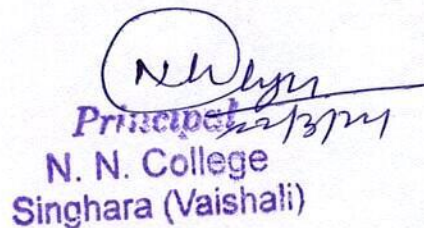 Principal
22/3/24
N. N. College
Singhara (Vaishali)